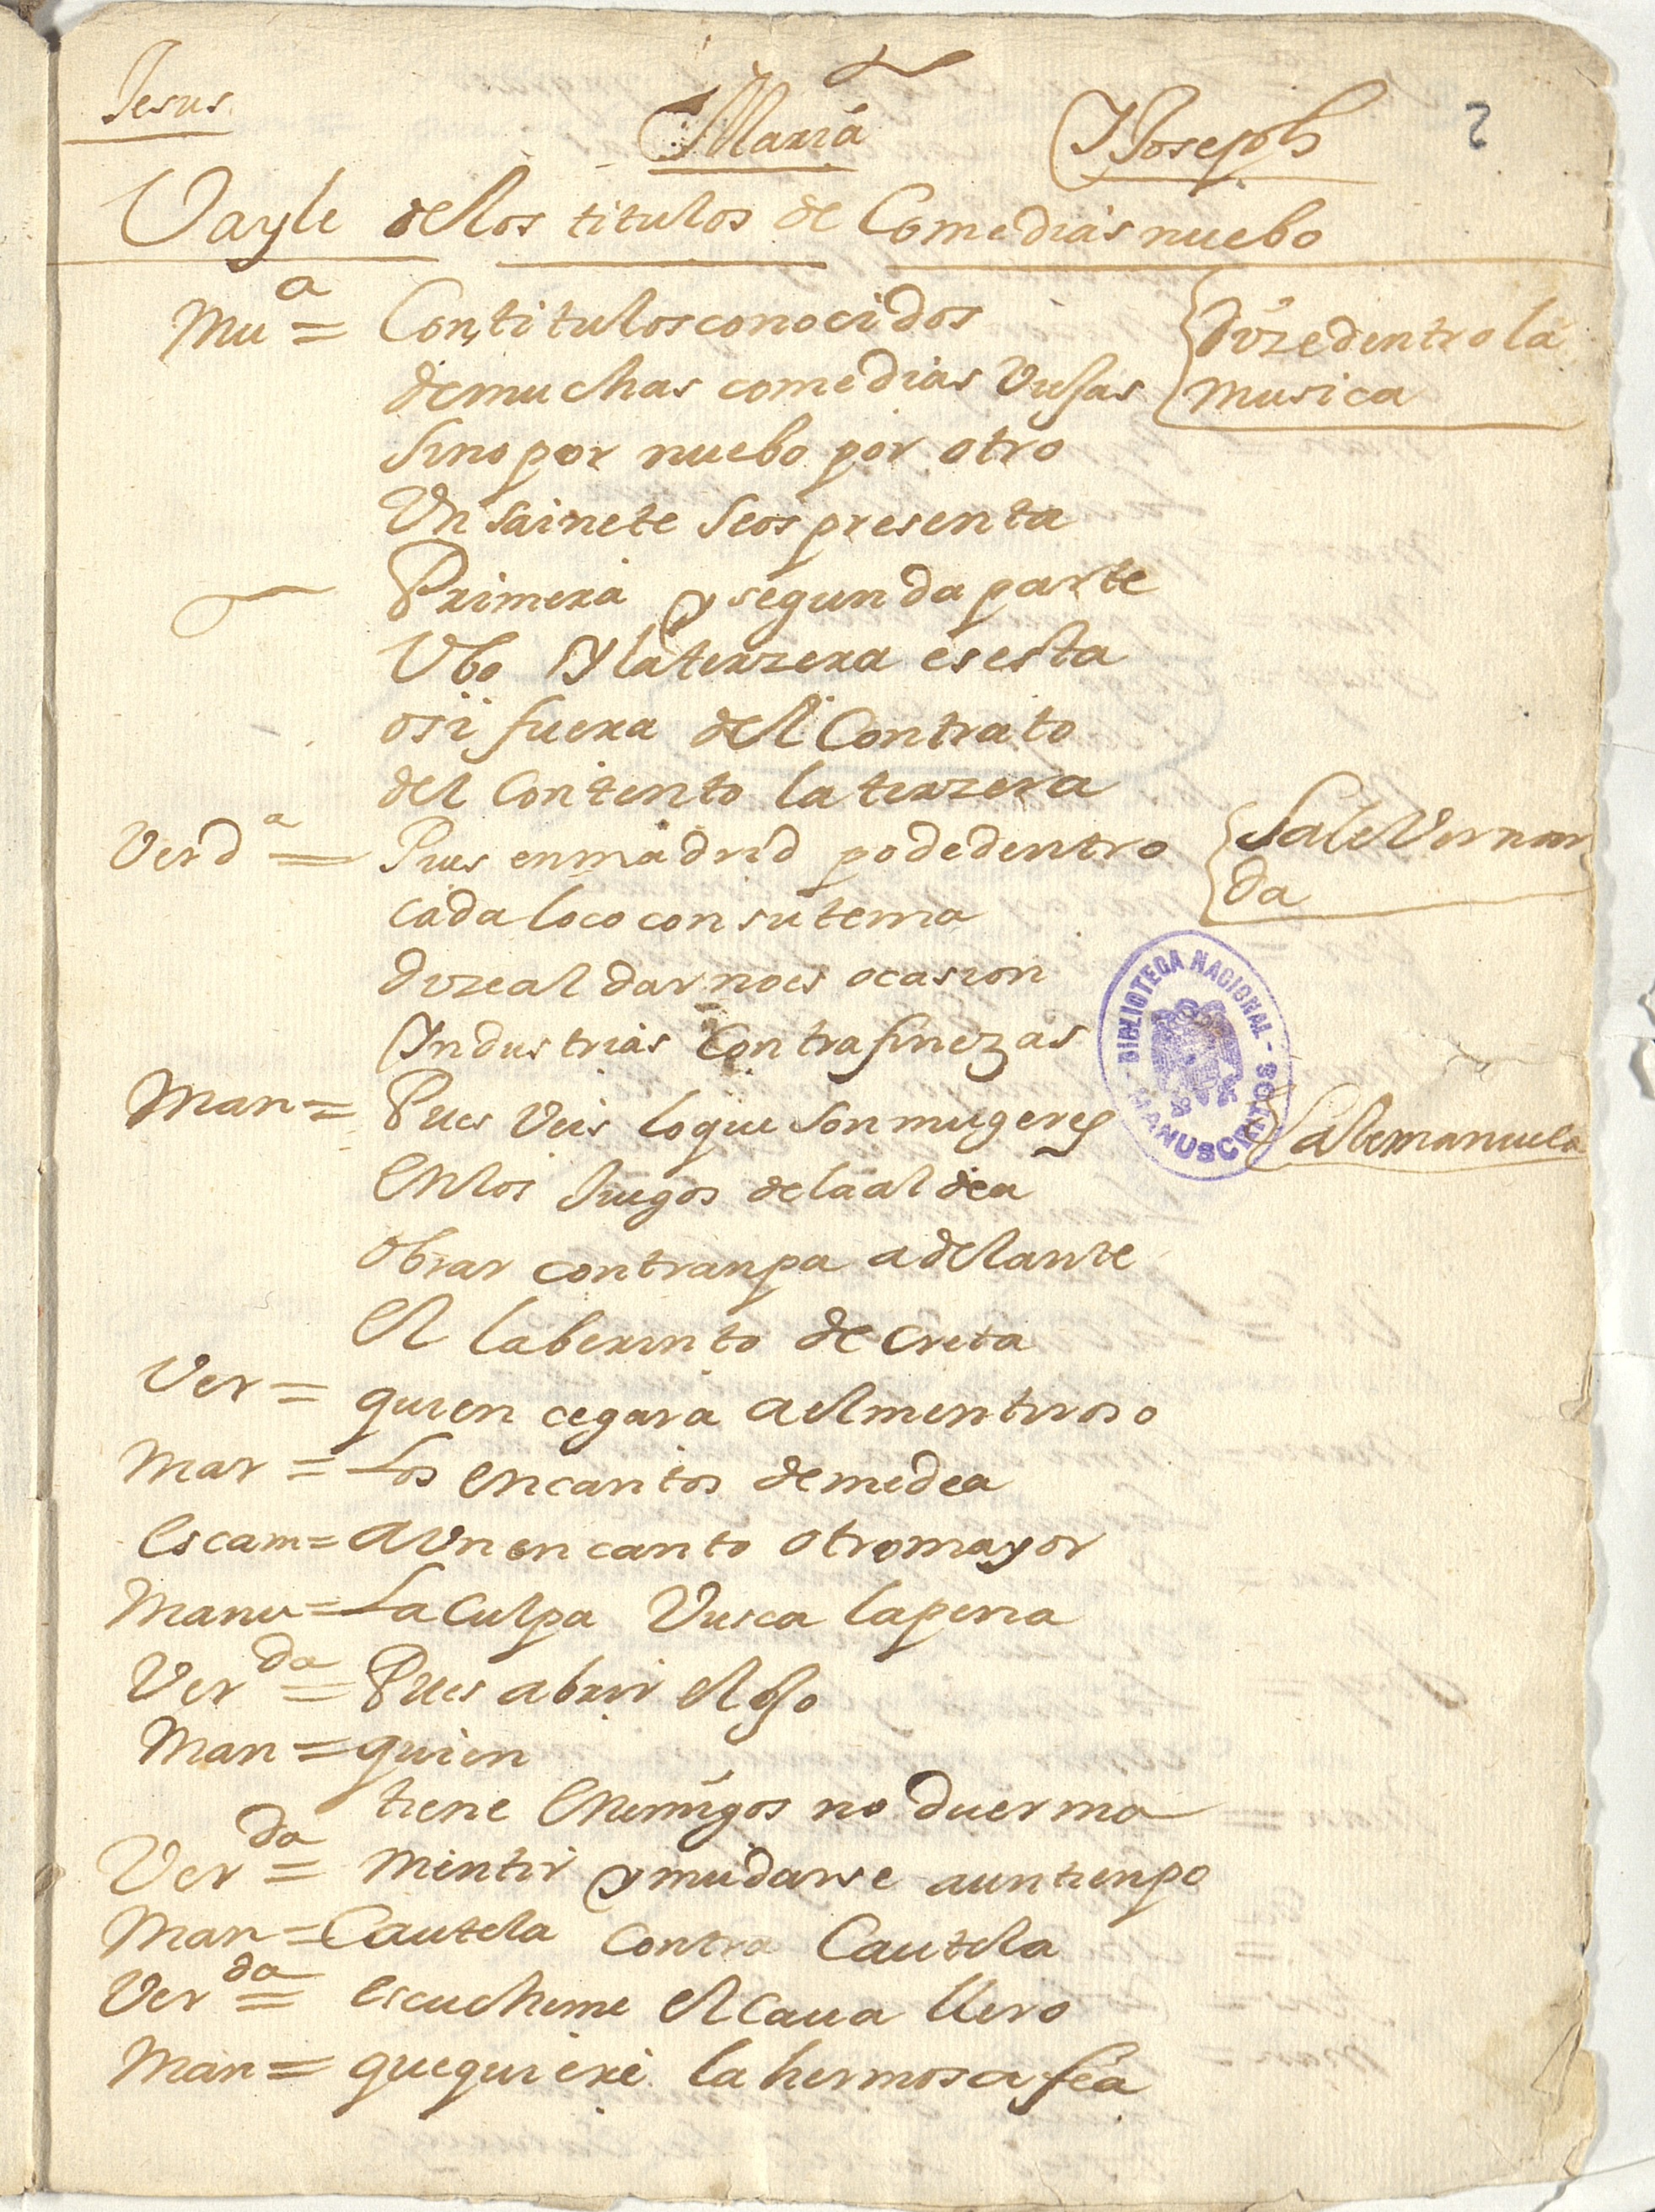 Jesus Maria Y Joseph 2
Vayle de los titulos de Comedias nuebo
Mu.a = Con titulos conocidos {dize dentro la
de muchas comedias viejas musica
sino por nuebo por otro
Un sainete se os presenta
Primera y segunda parte
Vbo y la terzera es esta
o si fuera del Contrato
del Contento la terzera
Verd.a = Pues en madrid pode dentro {Sale Vernar
da
cada loco con su tema
dize al dar no es ocasion
Industrias Contra finezas
Man = Pues Veis lo que son mugeres {Sale manuela
En los Juegos de la aldea
obrar contranpa adelante
El laberinto de Creta
Ver = quien cegara a el mentiroso
Mar = Los Encantos de medea
Escam = a vn encanto otro mayor
Manu = La Culpa Vusca la pena
Ver.da = Pues abrir el ojo
Man = quien
tiene Enemigos no duerma
Ver.da = Mentir y mudarse a un tienpo
Man = Cautela Contra Cautela
Ver.da = escucheme el Caua llero
Man = que quiere la hermosa fea
BIBLIOTECA NACIONAL - MANUSCRITOS